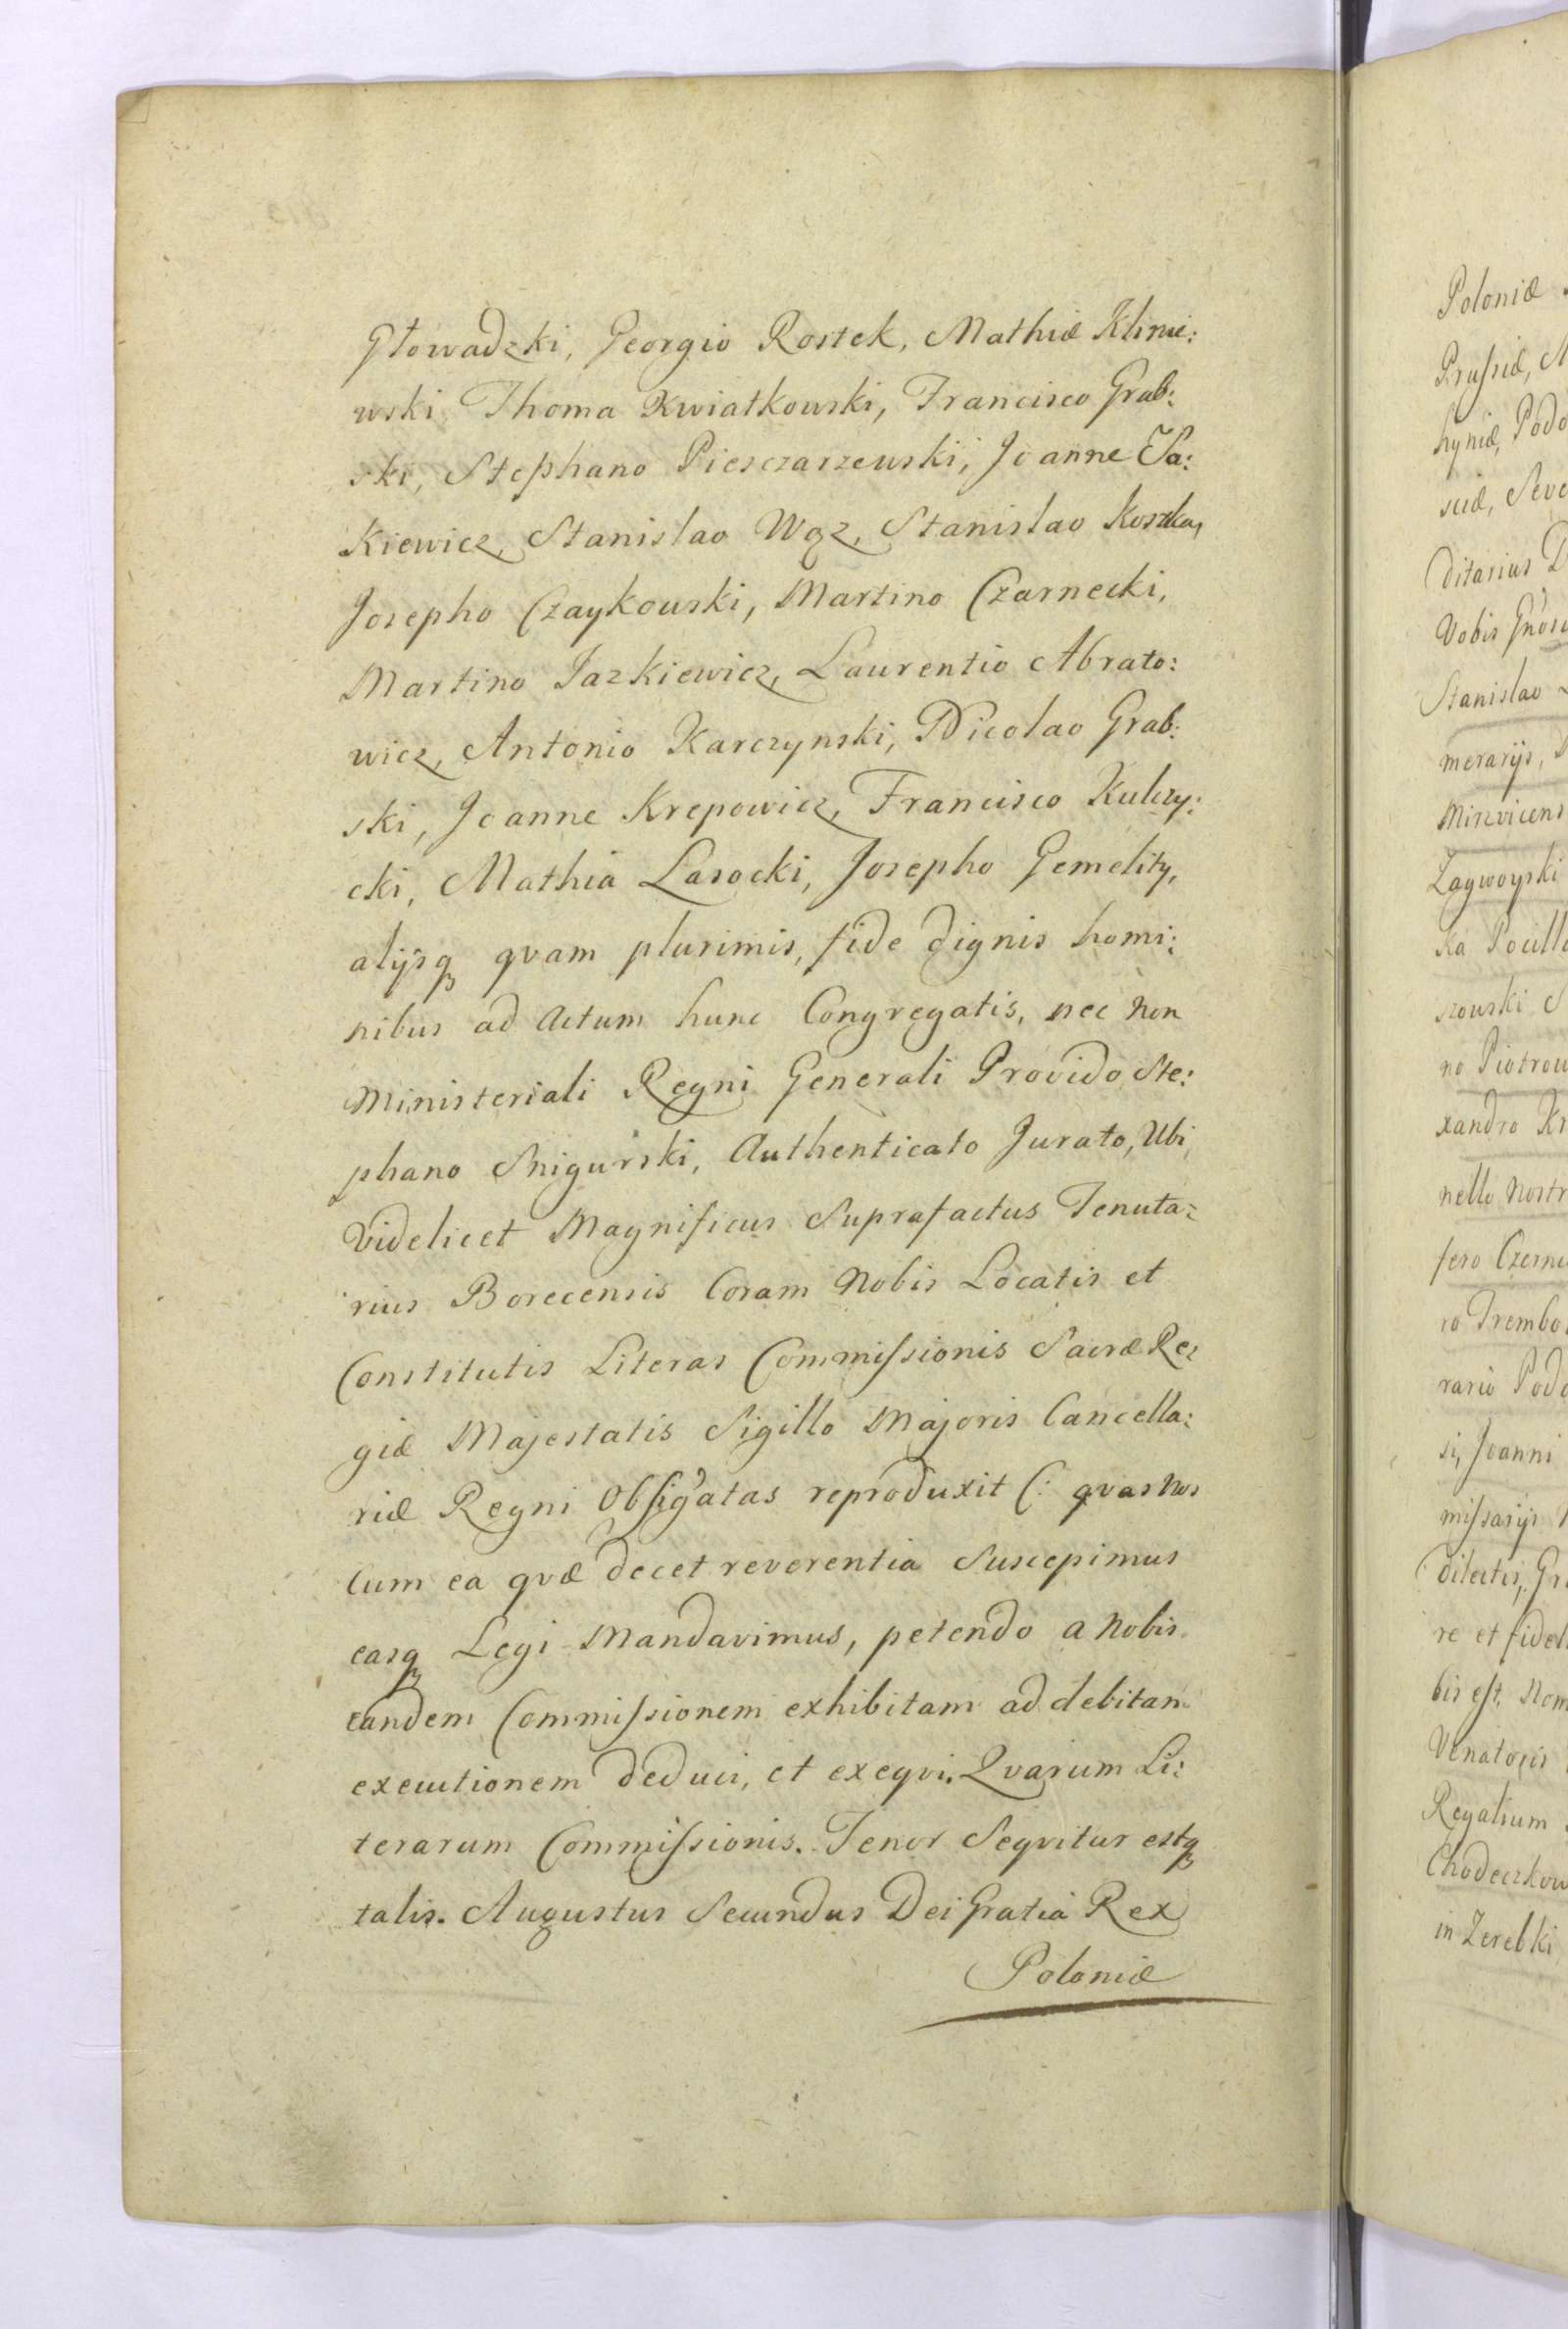 Głowadzki, Georgio Rostek, Mathiæ Klimie:
wski Thoma Kwiatkowski, Francisco Grab:
ski, Stephano Piesczarzewski, Joanne Sa:
Kiewicz, Stanislao Wąz, Stanislao Koszka,
Josepho Czaykowski, Martino Czarnecki,
Martino Jazkiewicz, Laurentio Abrato:
wicz, Antonio Karczynski, Nicolao Grab:
ski, Joanne Krepowicz, Francisco Kulczy:
cki, Mathia Lasocki, Josepho Gemelity,
alijsq quam plurimis, fide dignis homi:
nibus ad Actum hunc Congregatis, nec non
Ministeriali Regni Generali Provido Ste:
phano Snigurski, Authenticato Jurato, Ubi
Videlicet Magnificus Suprafactus Tenuta:
rius Borecensis Coram Nobis Locatis et
Constitutis Literas Commissionis Sacræ Re:
giæ Majestatis Sigillo Majoris Cancella:
riæ Regni Obsig'atas reproduxit (: qvas Nos
Cum ea qvæ decet reverentia Suscepimus
easq Legi Mandavimus, petendo a Nobis
eandem Commissionem exhibitam ad debitam
executionem deduci, et exeqvi. Qvarum Li:
terarum Commissionis. Tenor Seqvitur estq
talis. Augustus Secundus Dei Gratiâ Rex
Poloniæ
Poloniæ
Prussiæ, M
hyniæ, Podo
sciæ, Seve
ditarius D
Vobis G'nosi
Stanislao
merarijs,
Minvicens
Zagwoyski
ka Pocill
szowski S
no Piotrow
xandro Kr
nello Nostr
fero Czerni
ro Trembo
rario Podo
si, Joanni
missarijs N
dilectis, Gr
re et fidel
bis est, Nom
Venatoris
Regalium
Chodeczkow
in Zerebki